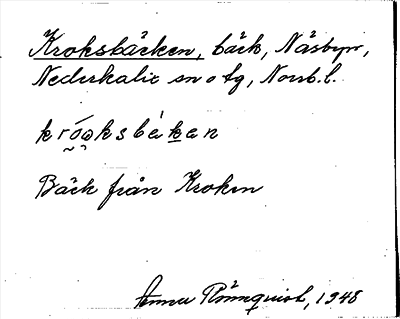 Kroksbäcken, bäck, Näsbyn,
Nederkalix sn o tg, Norrb.l.
króoksbèkan
Bäck från Kroken
Anna Rönnquist, 1948